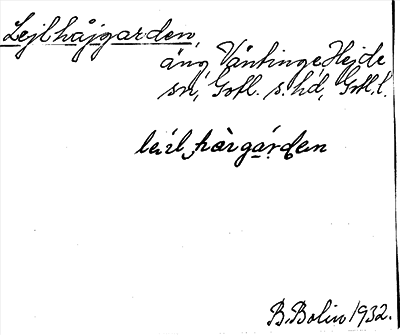 Lejlhåjgarden,
äng, Väntinge, Hejde
sn, Gotl. s. hd, Gotl. l.
lɛ́ılhȧ̀rgárdɛn
B. Bolin 1932.